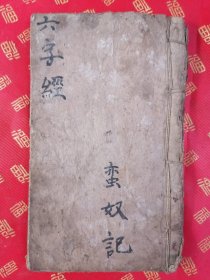 六字經
蛮奴記